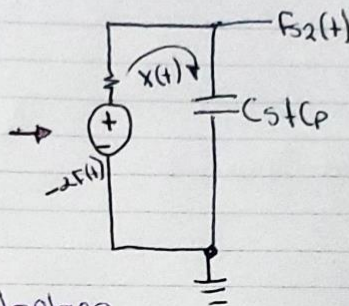 Fs2(t)
x(t)
Cs+Cp
+
-
-2F(t)